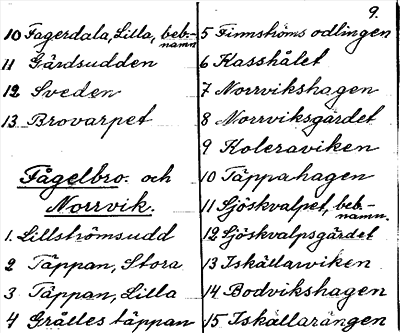 9.
10 Fagerdala, Lilla, beb.-namn
11 Gårdsudden
12 Sveden
13 Brovarpet
Fågelbro. och
Norrvik.
1. Lillströmsudd
2 Täppan, Stora
3 Täppan, Lilla
4 Grålles täppan
5 Finnströms odlingen
6 Kasshålet
7 Norrvikshagen
8 Norrviksgärdet
9 Koleraviken
10 Täppahagen
11 Sjöskvalpet, beb.-namn.
12 Sjöskvalpsgärdet
13 Iskällarviken
14 Bodvikshagen
15 Iskällarängen